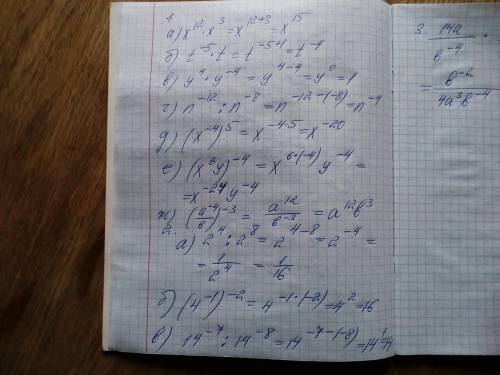 1.
а) x^12 · x^3 = x^12+3 = x^15
б) t^-5 · t = t^-5+1 = t^-4
в) y^4 · y^-4 = y^4-4 = y^0 = 1
г) n^-12 : n^-8 = n^-12-(-8) = n^-4
д) (x^-4)^5 = x^-4·5 = x^-20
е) (x^6 y)^-4 = x^6·(-4) y^-4 =
= x^-24 y^-4
ж) (a^-4/b)^-3 = a^12/b^-3 = a^12 b^3
2.
а) 2^4 : 2^8 = 2^4-8 = 2^-4 =
= 1/2^4 = 1/16
б) (4^-1)^-2 = 4^-1·(-2) = 4^2 = 16
в) 14^-7 : 14^-8 = 14^-7-(-8) = 14^1 = 14
3. 14a/b^-4 ·
= b^-2/4a^3b^-4